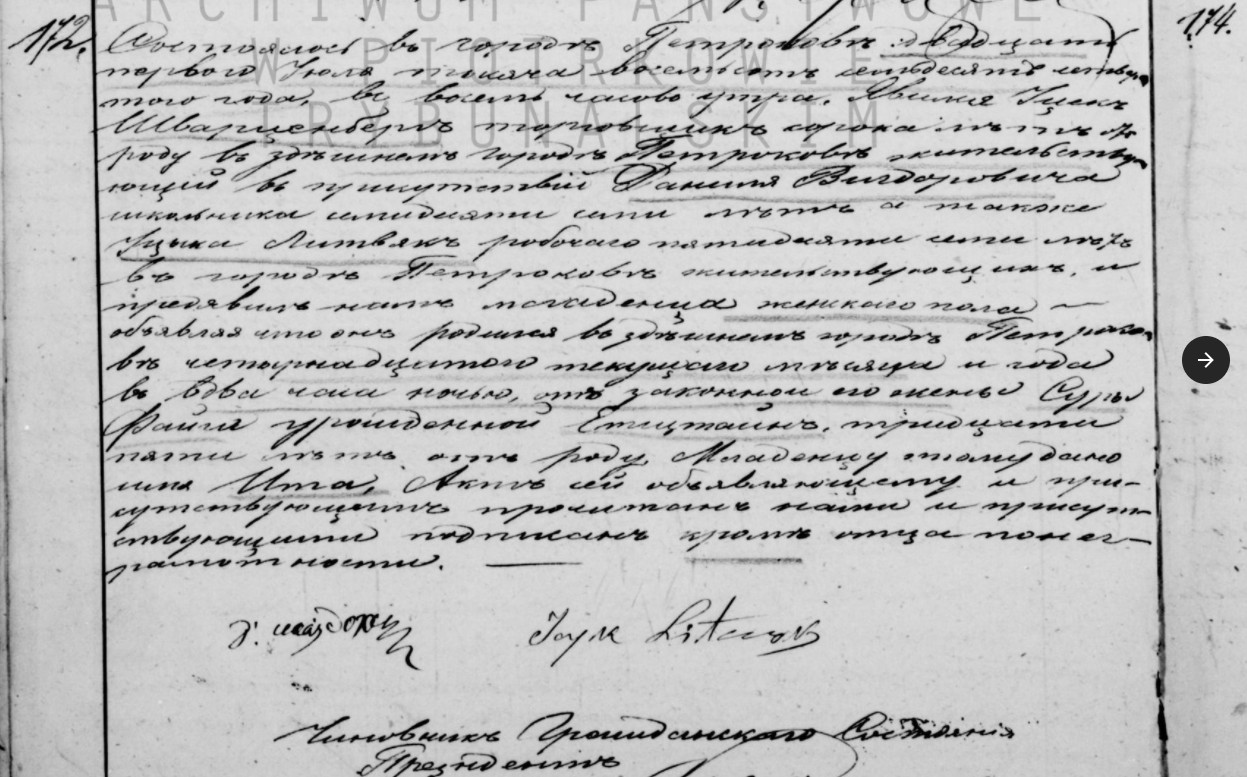 ARCHIWUM PAŃSTWOWE
W PIOTRKOWIE
TRYBUNALSKIM
172.
174.
Состоялось въ городѣ Петроковѣ двадцать
первого Іюля тысяча восемьсотъ семьдесятъ
того года, въ восемь часовъ утра. Явился Ицекъ
Шварценбергъ торговщикъ сорока лѣтъ отъ
роду въ здѣшнемъ городѣ Петроковѣ жительству
ющій въ присутствіи Даниля Вигдоровича
школьника семидесяти семи лѣтъ а также
Ицыка Литвякъ робочаго пятидесяти семи лѣтъ
въ городѣ Петроковѣ жительствующихъ, и
предявилъ намъ младенца женскаго пола —
объявляя что онъ родился въ здѣшнемъ городѣ Петроко
вѣ четырнадцатого текущаго мѣсяца и года
въ два часа ночью, отъ законной его жены Суры
Файги урожденной Епштайнъ, тридцати
пяти лѣтъ отъ роду. Младенцу этому дано
имя Ита, Актъ сей объявляющему и при-
сутствующимъ прочитанъ нами и присут-
ствующими подписанъ кромѣ отца понег-
рамотности. —
Icyk
Чиновникъ Гражданскаго Состоянія
Президентъ